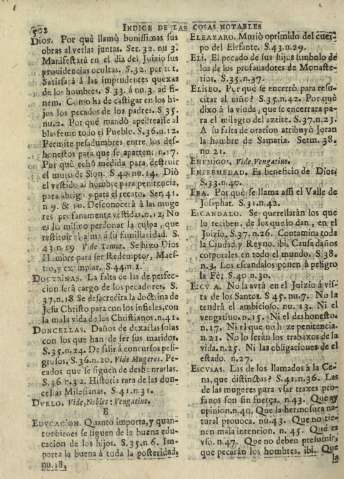 INDICE DE LAS COSAS NOTABLES
Dios. Por què llamò bonissimas sus
obras al verlas juntas. Ser. 32. nu 3.
Manifestarà en el dia del Juizio sus
providencias ocultas, S.32. per tot.
Satisfarà à las imprudentes quexas
de los hombres. S. 33. à nu.3. ad finem.
Como ha de castigar en los hijos
los pecados de los padres. S.35.
nu.2. Por què mandò apedrear al
blasfemo todo el Pueblo. S.36.n.12.
Permite pesadumbres entre los deshonestos
para que se aparten. n.17.
Por què echò medida para destruir
el muro de Sion. S 40. nu.14. Diò
el vestido al hombre para penitencia,
para abrigo y para el recato. Ser. 41.
n.9. & 10. Desconocerà à las mugeres
profanamente vestidas. n.12, No
es lo mismo perdonar la culpa, que
restituir la misma familiaridad. S.
43. n. 19 Vide Temor. Se hizo Dios
Hombre para ser Redemptor, Maestro,
y exemplar. S.44. n.1.
DOCTRINAS. La falta de la de perfeccion
serà cargo de los pecadores. S.
37. n.18 Se desacredita la doctrina de
Jesu Christo para con los infieles, con
la mala vida de los Christianos. n.41.
DONCELLAS. Daños de dexarlas solas
con los que han de ser sus maridos
S.35. n.24. De salir à concursos peligrosos.
S.36. n.20. Vide Mugeres. Pecados
que se siguen de deshonrarlas.
S 36 n.32. Historia rara de las doncellas
Milesianas. S 41. n.31.
DUELO. Vide, Nobles: Vengativo.
E
EDUCACION. Quanto importa, y quantos
bienes se siguen de la buena educacion
de los hijos. S.35.n.6. Importa
la buena à toda la posteridad,
nu.18.
ELEAZARO. Moriò oprimido del cuerpo
del Elefante. S.43.n.29.
ELI. El pecado de sus hijos simbolo de
los de los profanadores de Monasterios,
S.35.n.37.
ELISEO. Por què se encerrò para resucitar
al niño? S 35. n.42. Por què
dixo à la viuda, que se encerrara para
el milagro del azeite. S.37.n.23.
A su falta de oracion atribuyò Joran
la hambre de Samaria. Serm. 38.
nu. 21.
ENEMIGOS, Vide, Vengativo.
ENFERMEDAD. Es beneficio de Dios:
S.33.n.47.
ERA. Por què se llama assi el Valle de
Josaphat. S 31. n.42.
ESCANDALO. Se querellaràn los que
lo reciben, de los que lo dan, en el
Juizio, S.37. n.26. Contamina toda
la Ciudad y Reyno. ibi. Causa daños
corporales en todo el mundo. S 38.
n.3. Los escandalos ponen à peligro
la Fè. S. 40 n.30.
No la avrà en el Juizio à vista
de los Santos. S.45. nu.7. Ni la
tendrà el ambicioso. nu.13. Ni el
vengativo. n.15. Ni el deshonesto.
n.17. Ni el que no hize penitencia.
n.21. No lo seràn los trabaxos de la
vida. n.25. Ni las obligaciones de el
estado. n.27.
ESCUSAS. Las de los llamados à la Cena,
que distintas? S.41. n.36. Las
de las mugeres para usar trages profanos
son sin fuerça. n.43. Que ay
opinion. n.40. Que la hermosura natural
provoca. nu.43. Que no tienen
mala intencion. n. 45. Què es
uso. n.47. Que no deben presumir,
que pecaràn los hombres. ibi. Que